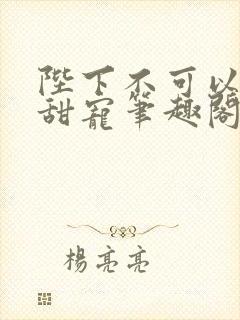 陛下不可以
甜寵筆趣閣
楊亮亮